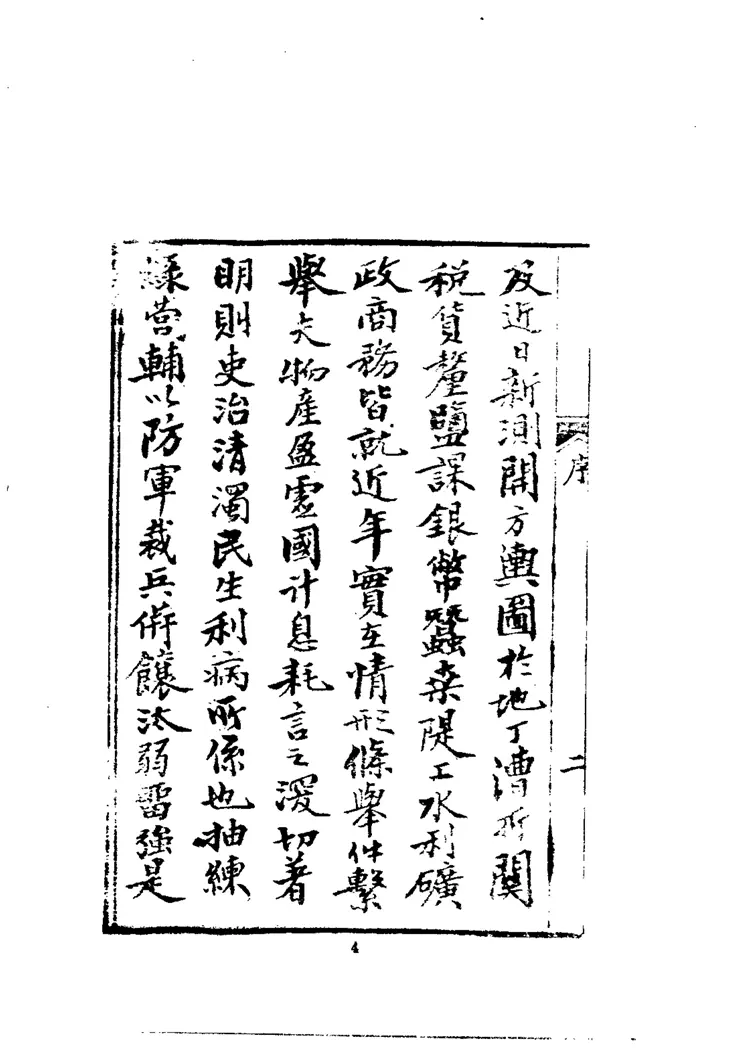 及近日新測開方輿圖於地丁漕折關
稅貨釐鹽課銀幣蠶桑隄工水利礦
政商務皆就近年實在情形條舉件繫
舉夫物產盈虛國計息耗言之深切著
明則吏治清濁民生利病所係也抽練
綠營輔以防軍裁兵併饟汰弱留強是
序
二
4